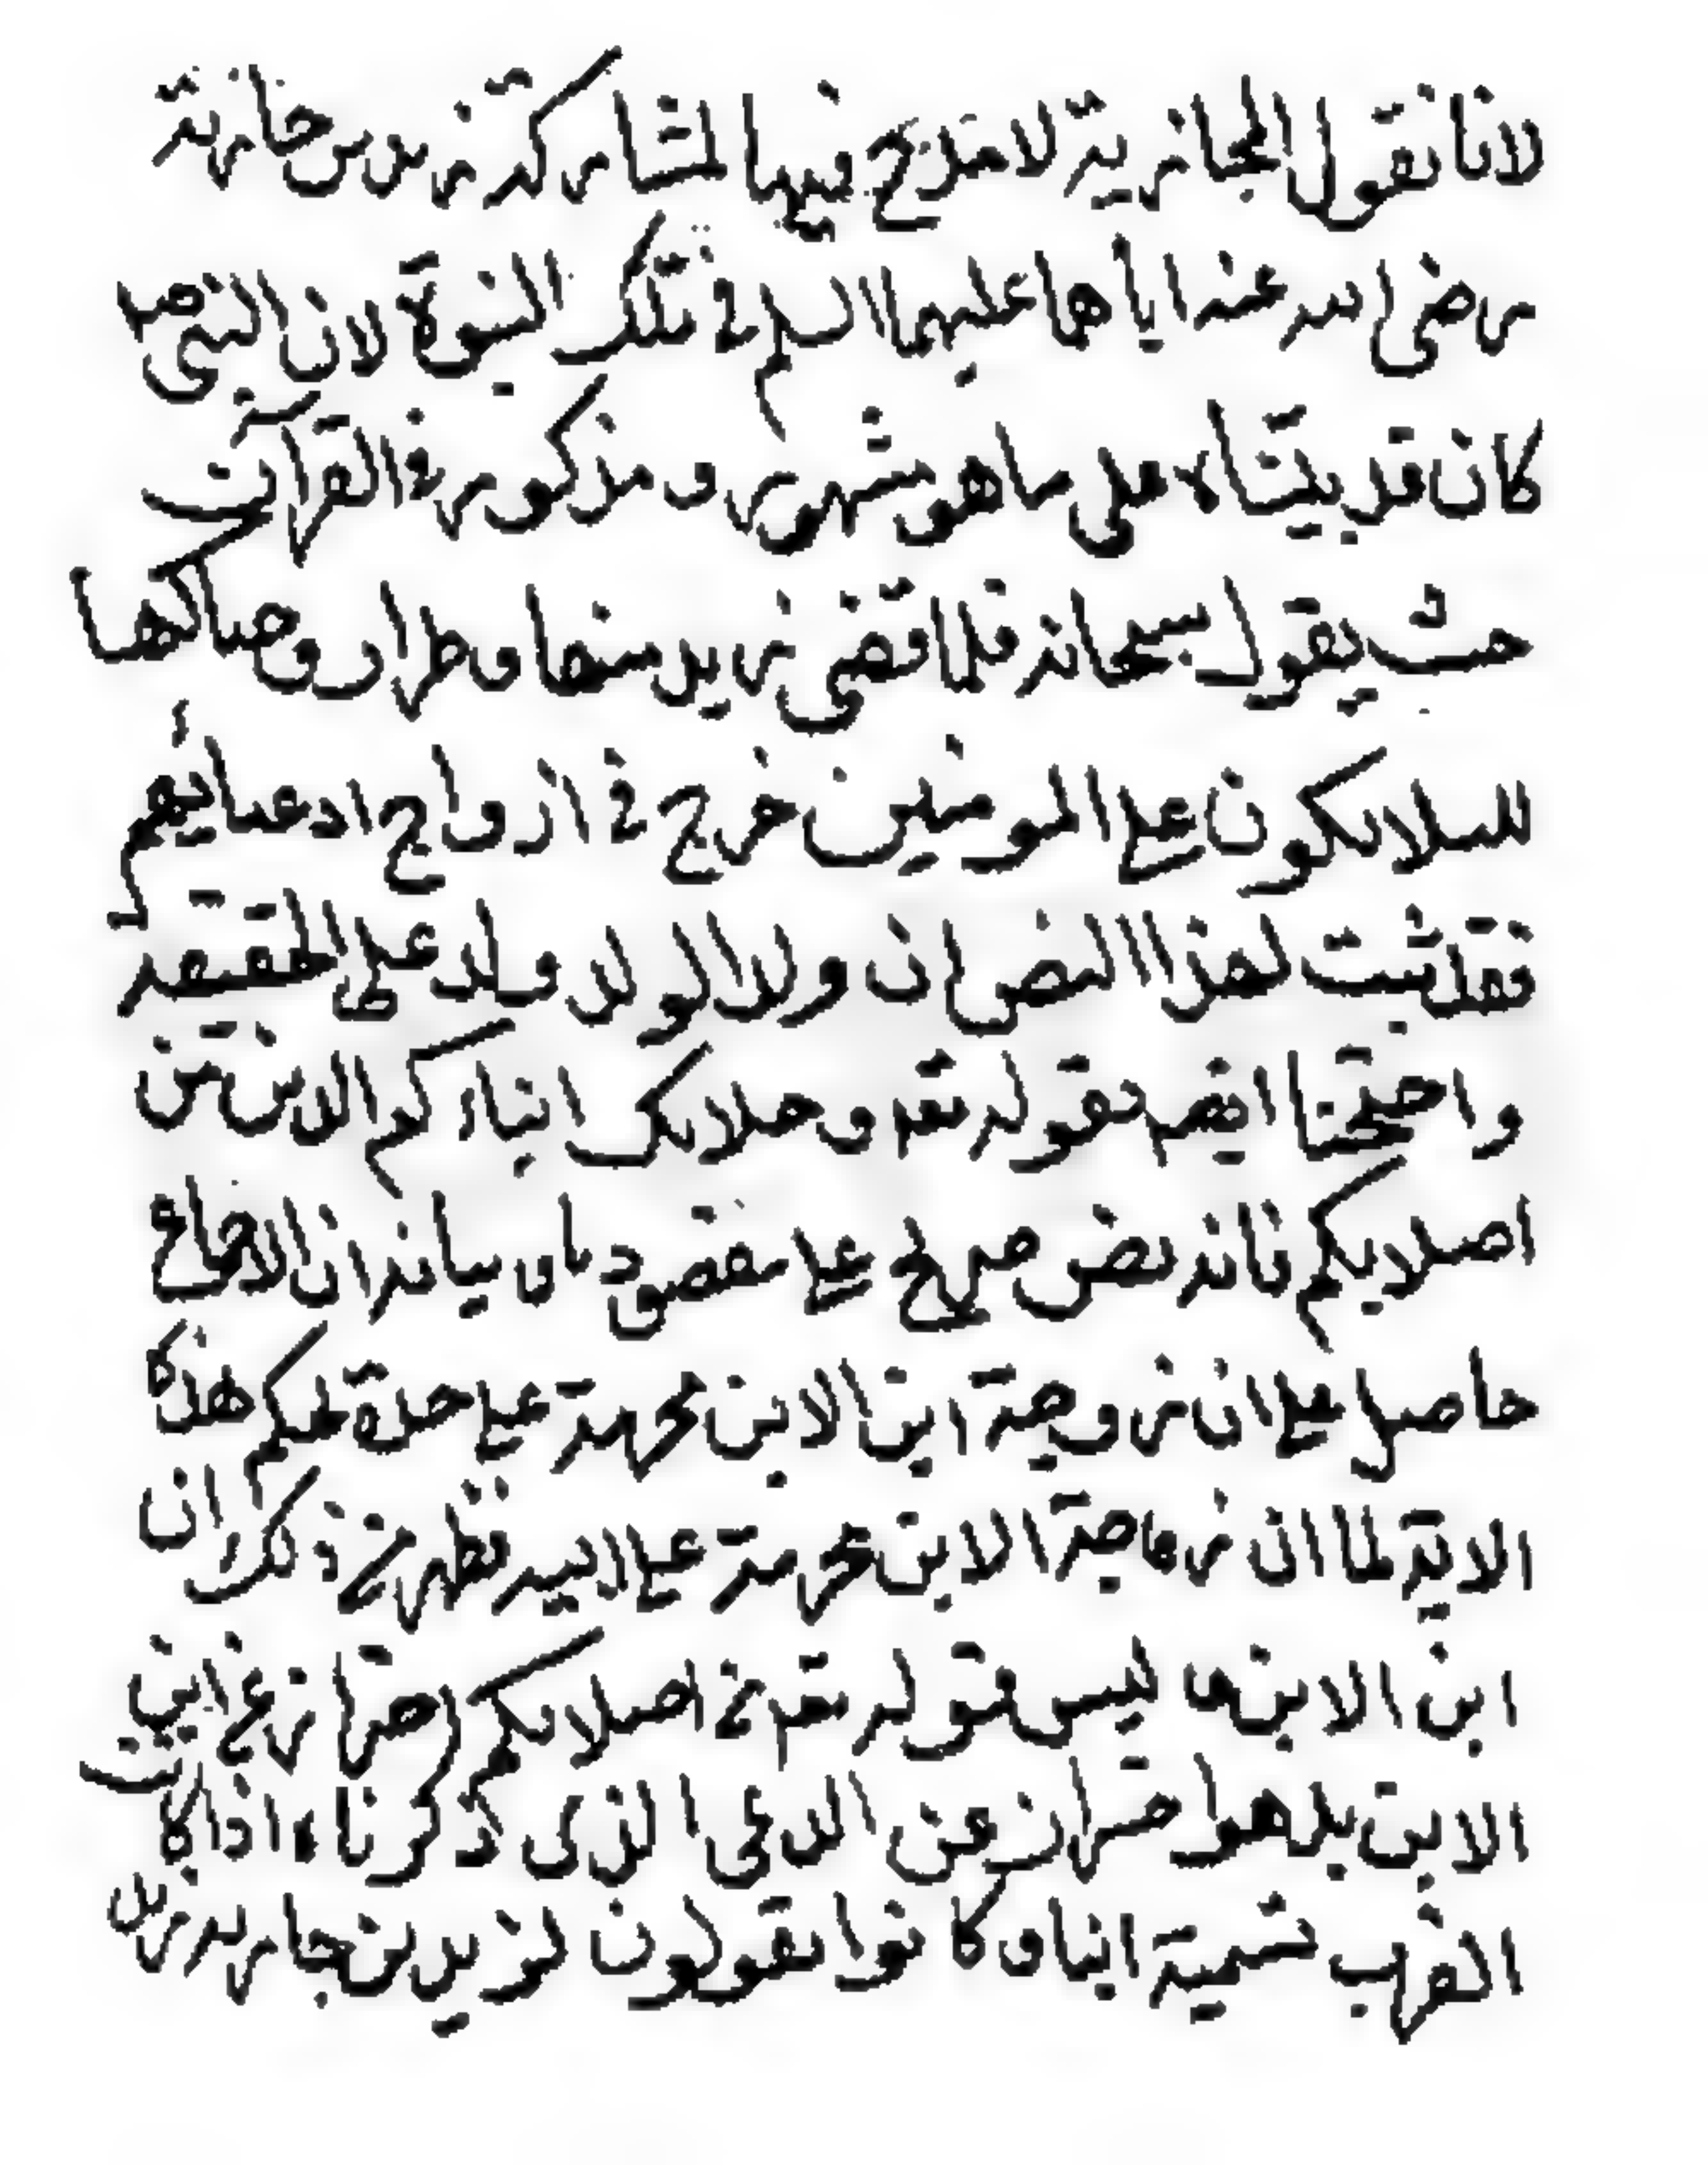 لانا نقول المجازية لا تقدح فيها لمشاركة زيد بن حارثة
رضى الله عنه اياها عليهما السلم في تلك النبوة لان النبى صه
كان قد بيناه على ما هو مشهور و مذكور في القرآن
حيث يقول سبحانه فلما قضى زيد منها وطرا زوجناكها
لئلا يكون على المومنين حرج في ازواج ادعيائهم
فقد ثبت لهذا النص ان ولد الولد ولد على الحقيقة
و احتججنا ايضه بقوله تعه و حلايل ابناءكم الذين من
اصلابكم فانه نص صريح على مقصودنا و بيانه ان الاجماع
حاصل على ان زوجة ابن الابن محرمة على جده بحكم هذه
الاية لما ان زوجة الابن محرمة على ابيه نظهر من ذلك ان
ابن الابن ابن ليس قوله تعه من اصلابكم احترازعن ابن
الابن بل هو احتراز عن الدعى الذى ذكرناه اذا كانت
العرب تسميه ابنا و كانوا يقولون لزيد بن حارثه زيد بن